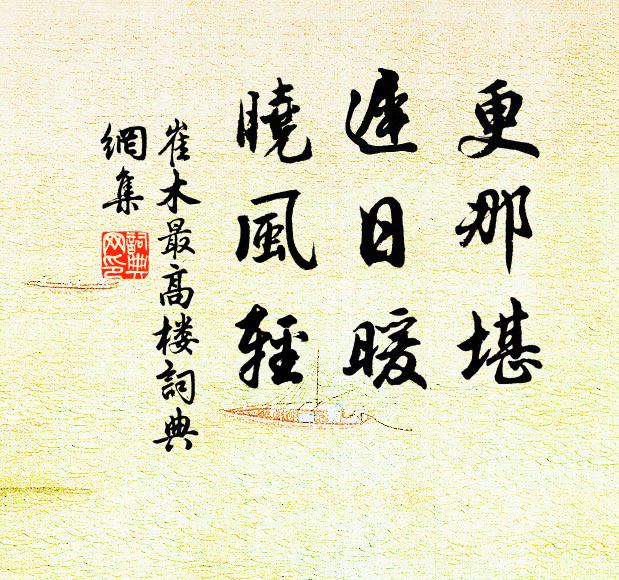 更那堪
遲日暖
曉風輕
崔木最高楼詞典
網集
詞典
网印